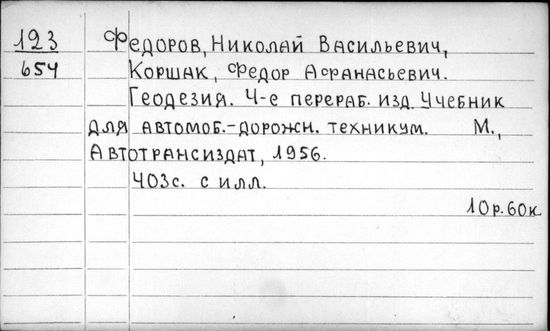 123 Федоров, Николай Васильевич,
654 Коршак, Федор Афанасьевич.
Геодезия. 4-е перераб. изд. Учебник
для автомоб.-дорожн. техникум. М.,
Автотрансиздат, 1956.
403с. с илл.
10р.60к